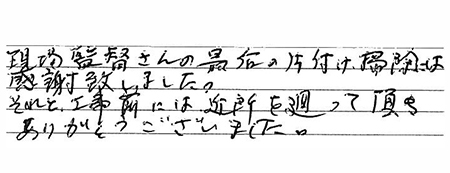 現場監督さんの最後の片付け、掃除には
感謝致しました。
それと、工事前には近所を廻って頂き
ありがとうございました。